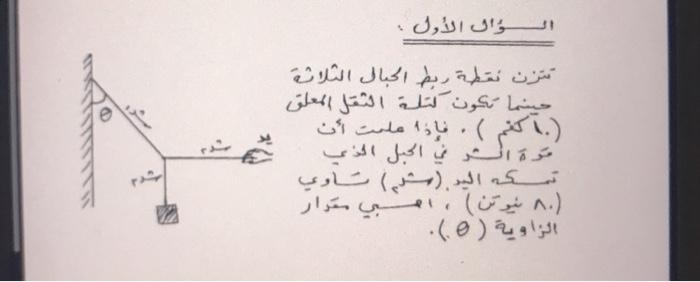 السؤال الأول .
تتزن نقطة ربط الحبال الثلاثة
حينما تكون كتلة الثقل المعلق
(١٠ كغم) . فإذا علمت أن
قوة الشد في الحبل الذي
تمسكه اليد (شد٢) تساوي
(٨٠ نيوتن) ، احسبي مقدار
الزاوية (θ).
θ
يد